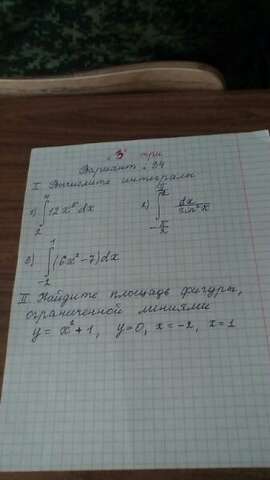 "3" три
Вариант 34
I Вычислите интегралы
1) ∫ 12x dx 2
2) ∫ dx
3) ∫ (6x² - 7) dx 1 -2
II Найдите площадь фигуры,
ограниченной линиями
y = x² + 1, y = 0, x = -2, x = 1